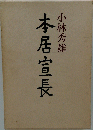 小林秀雄
本居宣長